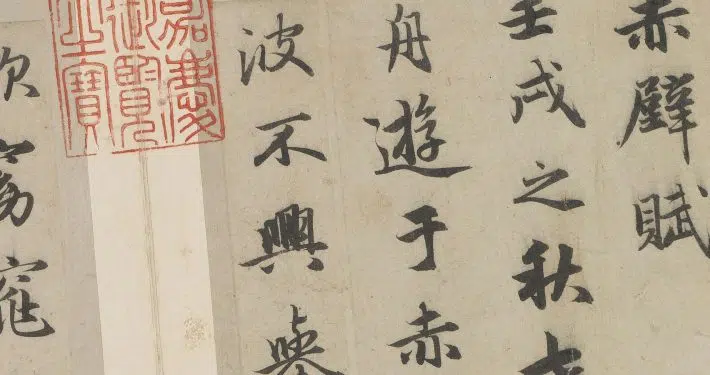 赤壁賦
壬戌之秋
舟遊于赤
波不興舉
嘉慶
御覽
之寶
窈窕